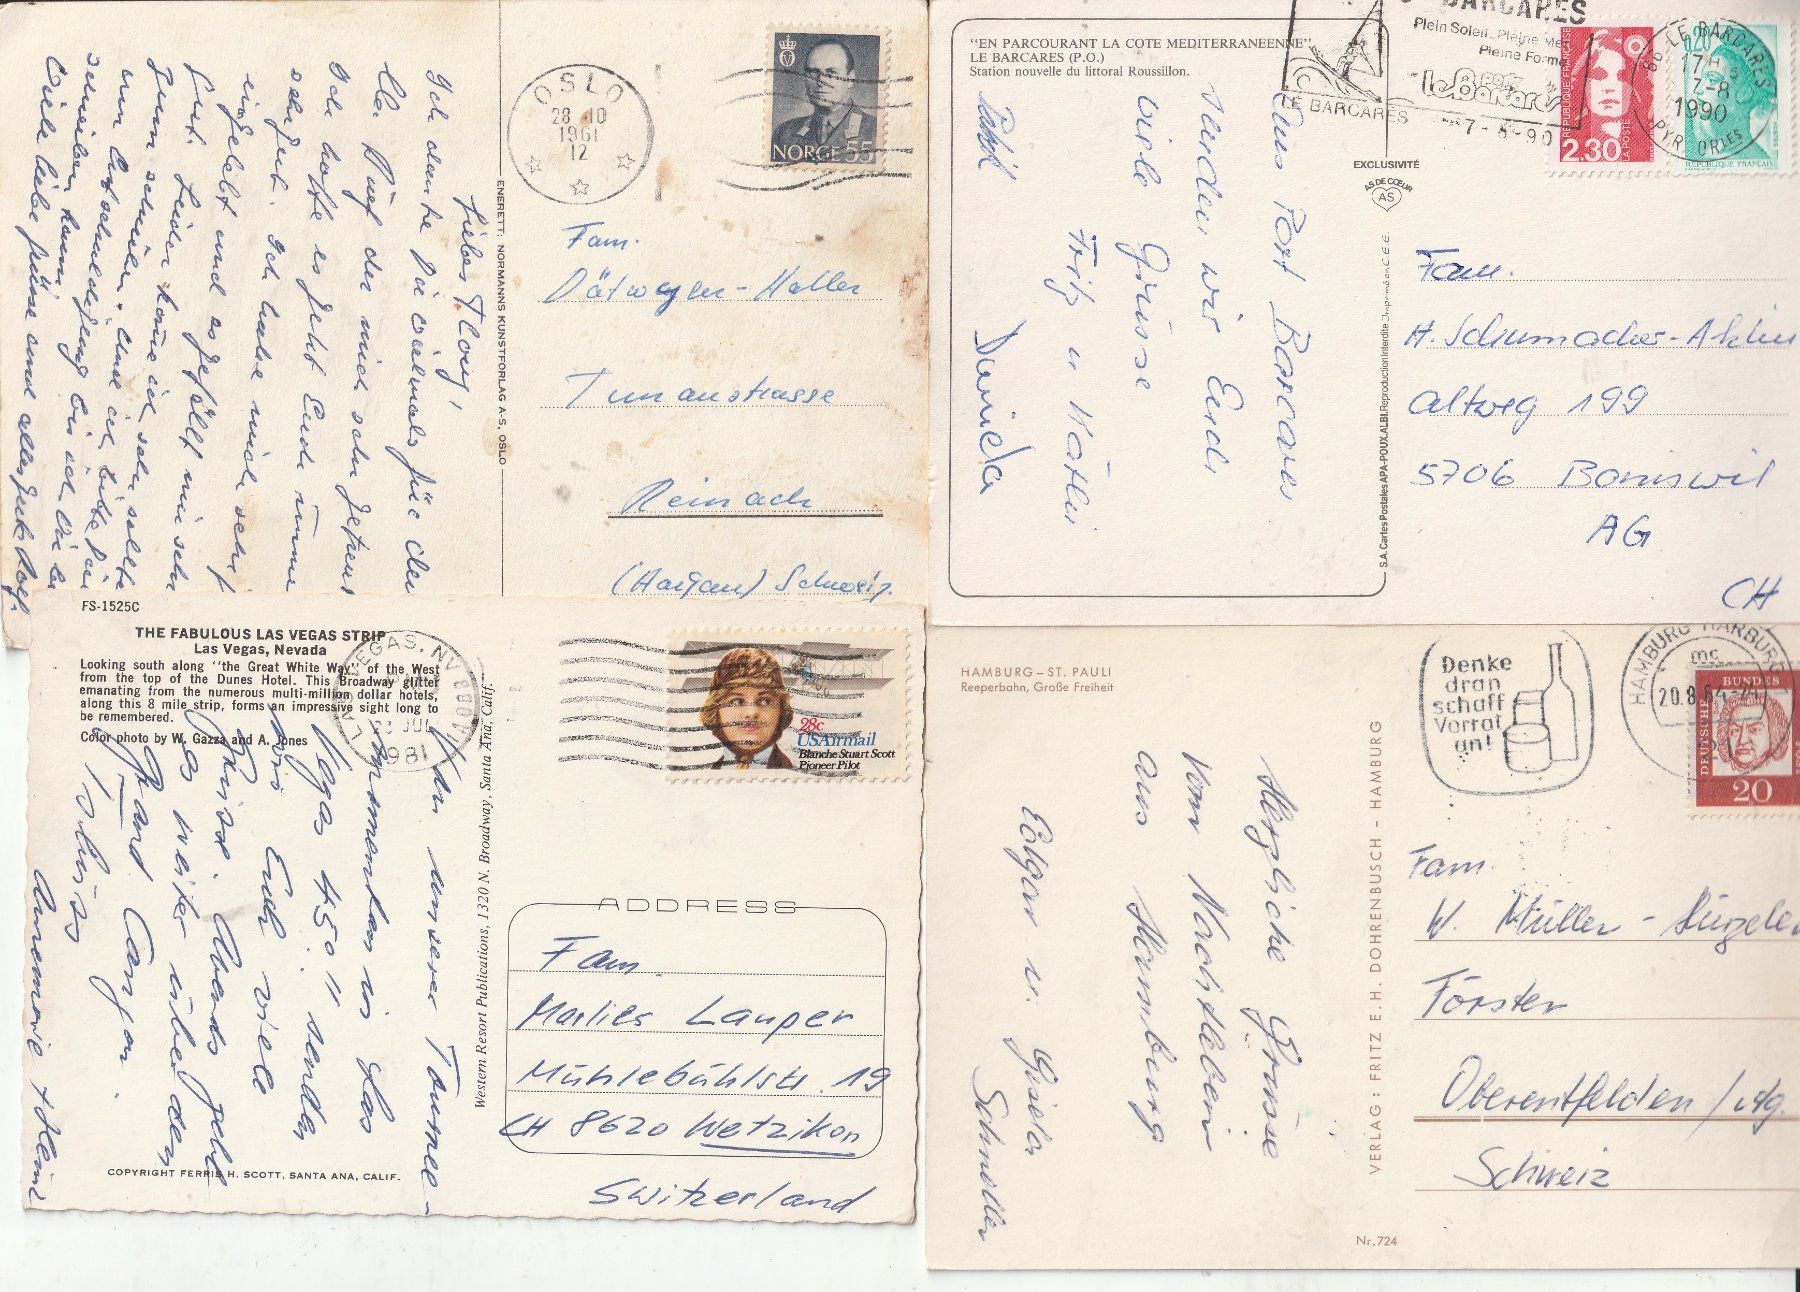 OSLO
28 10
1961
12
NORGE 55
Liebes Tlony!
Ich danke Dir vielmals für den
lb. Brief der mich sehr gefreut
Ich hoffe es geht Euch immer
sehr gut. Ich habe mich sehr
eingelebt und es gefällt mir sehr
gut. Leider kann ich sehr selten
zum schreiben
Viele liebe Grüsse und alles Gute Rolf
ENERETT: NORMANNS KUNSTFORLAG A-S, OSLO
Fam.
Dätwyler-Haller
Tunaustrasse
Reinach
(Aargau) Schweiz.
"EN PARCOURANT LA COTE MEDITERRANEENNE"
LE BARCARES (P.O.)
Station nouvelle du littoral Roussillon.
BARCARES
Plein Soleil, Pleine Mer
Pleine Forme
port
le Barcares
LE BARCARES
-7-8-90
REPUBLIQUE FRANÇAISE
2.30
LA POSTE
0,20
REPUBLIQUE FRANÇAISE
66 LE BARCARES
17H
7-8
1990
PYR. ORIES
EXCLUSIVITÉ
AS DE CŒUR
AS
S.A. Cartes Postales APA-POUX, ALBI. Reproduction interdite
Aus Port Barcares
senden wir Euch
viele Grüsse
Fritz u
Daniela
Fam.
H. Schumacher-
Altweg 199
5706 Boniswil
AG
CH
FS-1525C
THE FABULOUS LAS VEGAS STRIP
Las Vegas, Nevada
Looking south along "the Great White Way" of the West
from the top of the Dunes Hotel. This Broadway glitter
emanating from the numerous multi-million dollar hotels,
along this 8 mile strip, forms an impressive sight long to
be remembered.
Color photo by W. Gazza and A. Jones
LAS VEGAS, NV
JUL
1981
28c
USAirmail
Blanche Stuart Scott
Pioneer Pilot
Von unserer Tournee-
momentan in Las
Vegas 45° senden
wir Euch viele
Grüsse. Abends geht
es weiter über den
Grand Canyon.
Tschüss
Annemarie + Heinz
COPYRIGHT FERRIS H. SCOTT, SANTA ANA, CALIF.
Western Resort Publications, 1320 N. Broadway, Santa Ana, Calif.
ADDRESS
Fam.
Marlies Lauper
Mühlebühlstr. 19
CH 8620 Wetzikon
Switzerland
HAMBURG – ST. PAULI
Reeperbahn, Große Freiheit
Denke
dran
schaff
Vorrat
an!
HAMBURG HARBURG
mc
20.8.64
DEUTSCHE
BUNDES
20
Herzliche Grüsse
vom Nachtleben
aus Hamburg
Edgar u. Gisela
Schmoller
VERLAG: FRITZ E. H. DOHRENBUSCH - HAMBURG
Fam.
W. Müller-
Förster
Oberentfelden / Arg.
Schweiz
Nr. 724